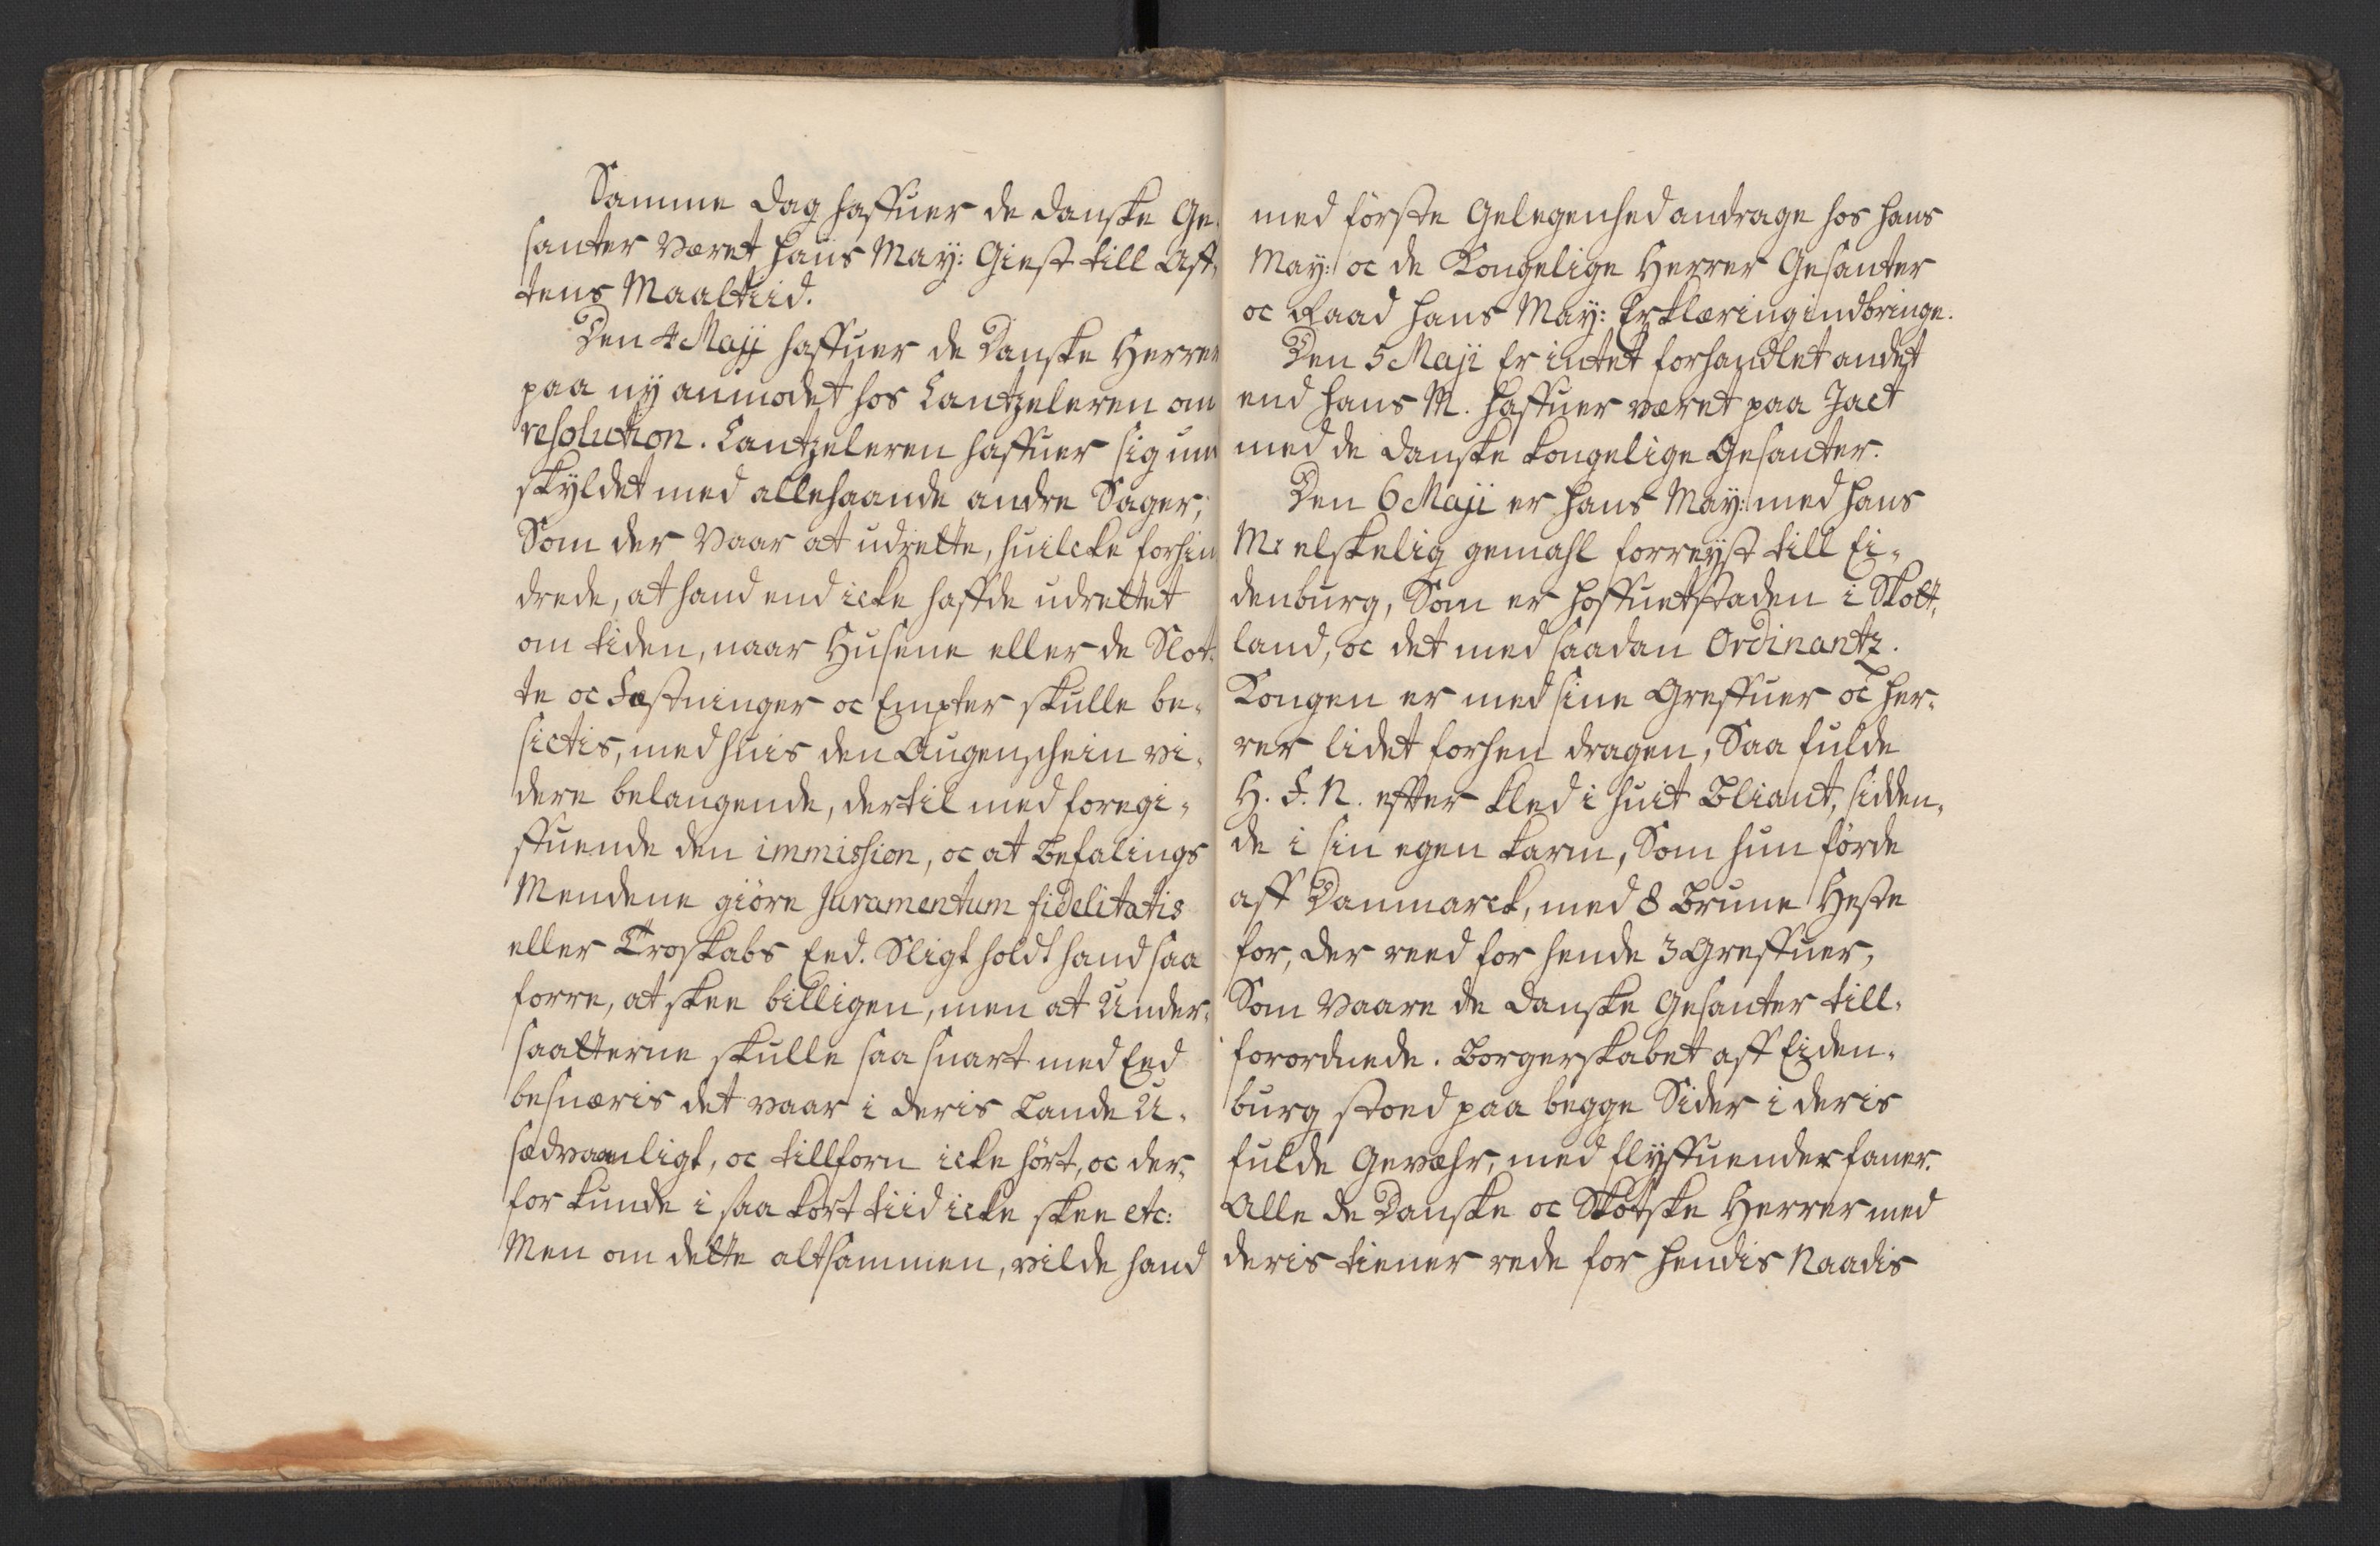 Samme Dag haffuer de Danske Ge,
santer været Hans May: Giest till Aff,
tens Maaltiid.
Den 4 Maji haffuer de Danske Herrer
paa ny anmodet hos Cantzeleren om
resolution. Cantzeleren haffuer sig und
skyldet med allehaande andre Sager,
Som der Vaar at udrette, huilcke forhin
drede, at hand end icke haffde udrettet
om tiden, naar Husene eller de Slot,
te oc Fæstninger oc Empter skulle be,
sictis, med huis den Augenschein vi,
dere belangende, dertil med foregi,
ffuende den immission, oc at Befalings
Mendene giöre Juramentum fidelitatis
eller Troskabs Eed. Sligt holdt hand saa
forre, at skee billigen, men at Under,
saatterne skulle saa snart med Eed
besnæris det vaar i deris Lande U,
sædvaanligt, oc tillforn icke hört, oc der,
for kunde i saa kort tiid icke skee etc:
Men om dette altsammen, vilde hand
med förste Gelegenhed andrage hos Hans
May: oc de Kongelige Herrer Gesanter
oc Raad Hans May: Erklæring indbringe.
Den 5 Maji Er intet forhandlet andet
end Hans M. Haffuer været paa Jact
med de Danske Kongelige Gesanter.
Den 6 Maji er Hans May: med Hans
M: elskelig gemahl forreyst till Ei,
denburg, Som er Hoffuetstaden i Skott,
land, oc det med saadan Ordinantz.
Kongen er med sine Greffuer oc Her,
rer lidet forhen dragen, Saa fulde
H. F. N. effter kled i Huit Bliant, sidden,
de i sin egen karm, Som hun förde
aff Danmarck, med 8 Brune Heste
for, der reed for hende 3 Greffuer,
Som Vaare de Danske Gesanter till,
forordnede. Borgerskabet aff Eiden,
burg stoed paa begge Sider i deris
fulde Gevæhr, med flyffuender faner.
Alle de Danske oc Skotske Herrer med
deris tiener rede for Hendis Naadis